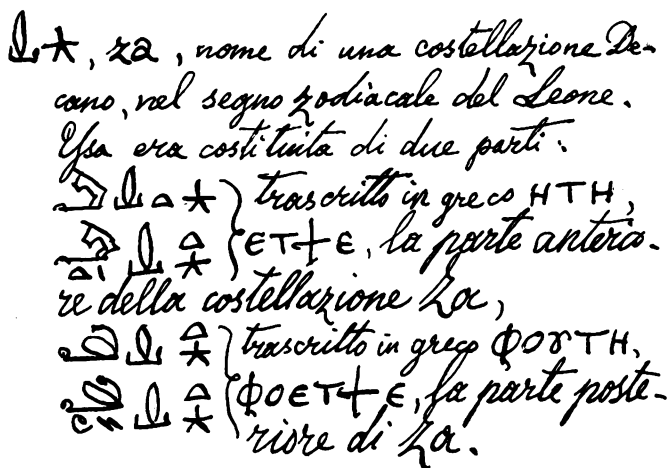 𓍔𓇼, za, nome di una costellazione De-
cano, nel segno zodiacale del Leone.
Essa era costituita di due parti:
trascritto in greco ΗΤΗ,
ΕΤ☩Ε, la parte anterio-
re della costellazione Za,
trascritto in greco ΦΟΥΤΗ,
ΦΟΕΤ☩Ε, la parte poste-
riore di Za.